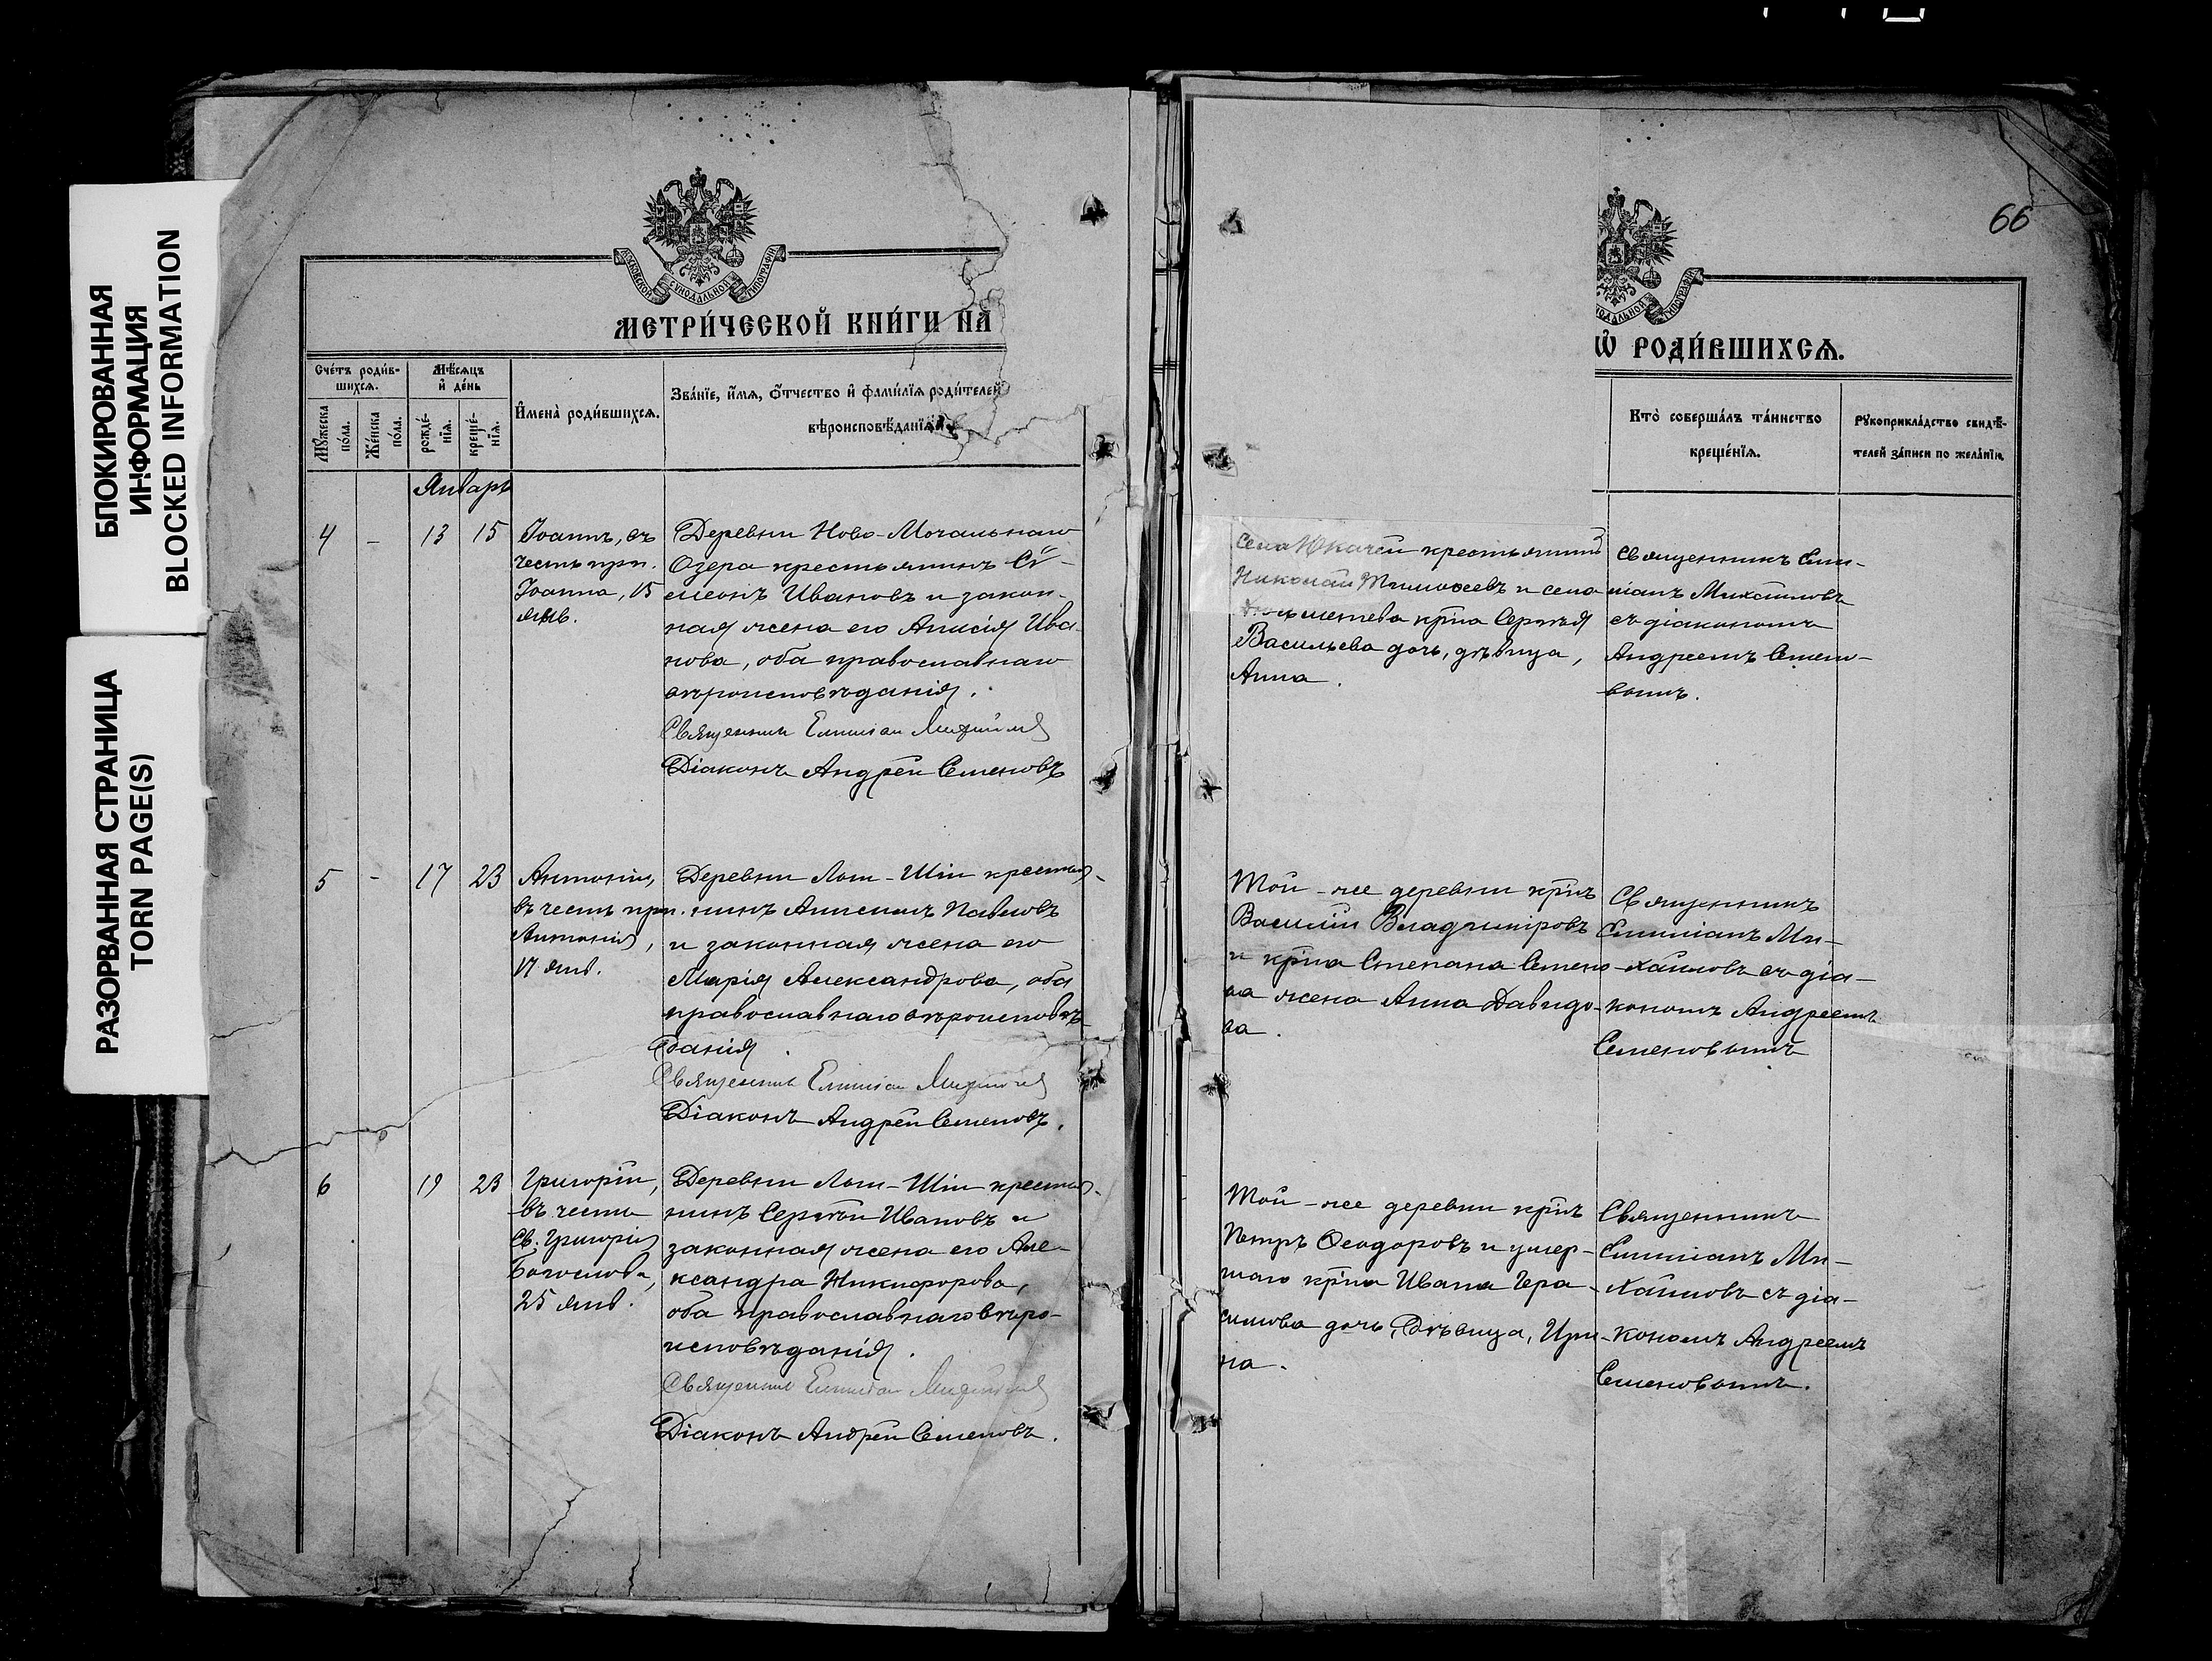 66
БЛОКИРОВАННАЯ
ИНФОРМАЦИЯ
BLOCKED INFORMATION
РАЗОРВАННАЯ СТРАНИЦА
TORN PAGE(S)
МОСКОВСКОЙ СѴНОДАЛЬНОЙ ТИПОГРАФІИ
МЕТРИ́ЧЕСКОЙ КНИ́ГИ НА
Сче́тъ роди́в-
шихсѧ.
Мѣ́сѧцъ
и҆ де́нь
Мꙋ́жеска
по́ла.
Же́нска
по́ла.
рожде́-
нїѧ.
креще́-
нїѧ.
И҆мена̀ роди́вшихсѧ.
Зва́нїе, и҆́мѧ, ѻ҆́тчество и҆ фами́лїѧ роди́телей
вѣроисповѣ́данїѧ
Январь
4 - 13 15
Іоаннъ, въ
честь прп.
Іоанна, 15
янв.
Деревни Ново-Мочальнаго
Озера крестьянинъ Си-
меонъ Ивановъ и закон-
ная жена его Анисія Ива-
нова, оба православнаго
вѣроисповѣданія.
Священникъ Емиліан Михайловъ
Діаконъ Андрей Семеновъ
5 - 17 23
Антоній,
въ честь прп.
Антонія,
17 янв.
Деревни Лит-Ші крестья-
нинъ Павловъ
и законная жена его
Марія Александрова, оба
православнаго вѣроисповѣ-
данія.
Священникъ Емиліан Михайловъ
Діаконъ Андрей Семеновъ.
6 19 23
Григорій,
въ честь
Св. Григорія
Богослова,
25 янв.
Деревни крестья-
нинъ Сергѣй Ивановъ и
законная жена его Але-
ксандра Никифорова,
оба православнаго вѣро-
исповѣданія.
Священникъ Емиліан Михайловъ
Діаконъ Андрей Семеновъ.
СѴНОДАЛЬНОЙ ТИПОГРАФІИ
Ѡ҆ РОДИ́ВШИХСѦ.
Кто̀ соверша́лъ та́инство
креще́нїѧ.
Рꙋкоприкла́дство свидѣ́-
телей за́писи по жела́нїю
Села Юкачей крестьянинъ
Николай Тимоѳеевъ и села
кр-на Сергѣя
Васильева дочь, дѣвица,
Анна.
Священникъ Еми-
ліанъ Михайловъ
съ діакономъ
Андреемъ Семено-
вымъ.
Той-же деревни кр-нъ
Василій Владиміровъ
и кр-на Степана Семено-
ва жена Анна Давидо-
ва.
Священникъ
Емиліанъ Ми-
хайловъ съ діа-
кономъ Андреемъ
Семеновымъ
Той-же деревни кр-нъ
Петръ Ѳеодоровъ и умер-
шаго кр-на Ивана Гера-
симова дочь, дѣвица, Ири-
на.
Священникъ
Емиліанъ Ми-
хайловъ съ діа-
кономъ Андреемъ
Семеновымъ.